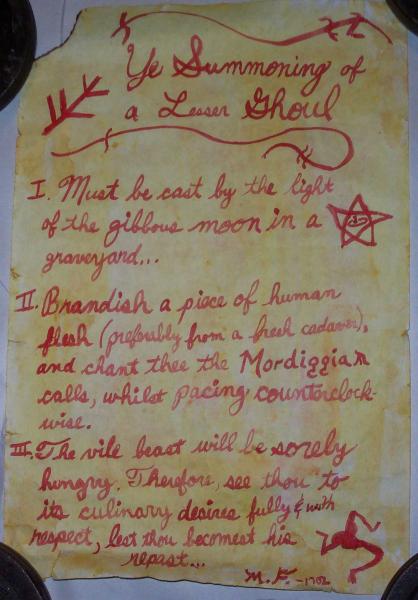 Ye Summoning of
a Lesser Ghoul
I. Must be cast by the light
of the gibbous moon in a
graveyard...
II. Brandish a piece of human
flesh (preferably from a fresh cadaver),
and chant thee the Mordiggian
calls, whilst pacing counterclock-
wise.
III. The vile beast will be sorely
hungry. Therefore, see thou to
its culinary desires fully & with
respect, lest thou becomest his
repast...
M. F. -1702